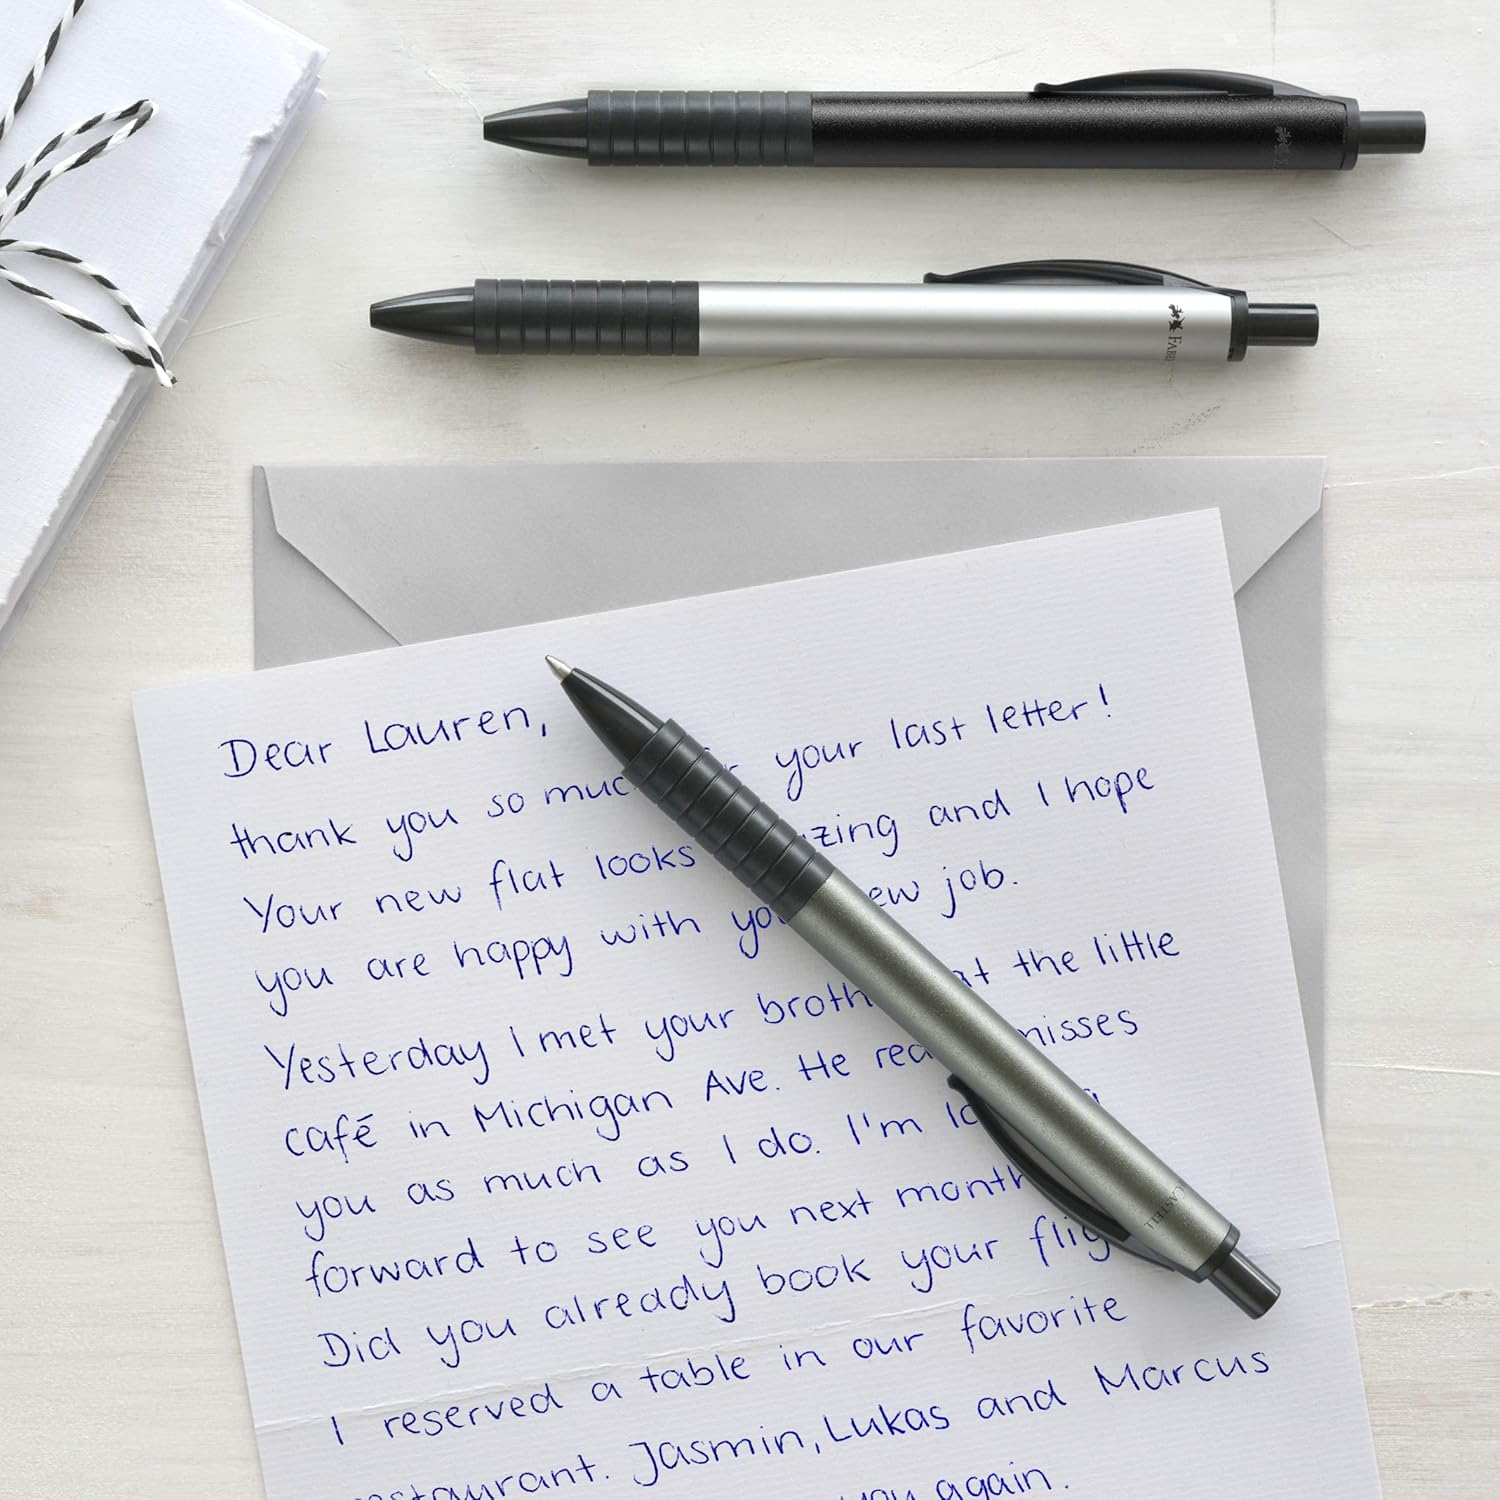 FABE
Dear Lauren,
thank you so muc your last letter!
Your new flat looks zing and I hope
you are happy with yo ew job.
Yesterday I met your broth at the little
café in Michigan Ave. He rea misses
you as much as I do. I'm lo g
forward to see you next month
Did you already book your flig
I reserved a table in our favorite
restaurant. Jasmin, Lukas and Marcus
you again.
CASTELL